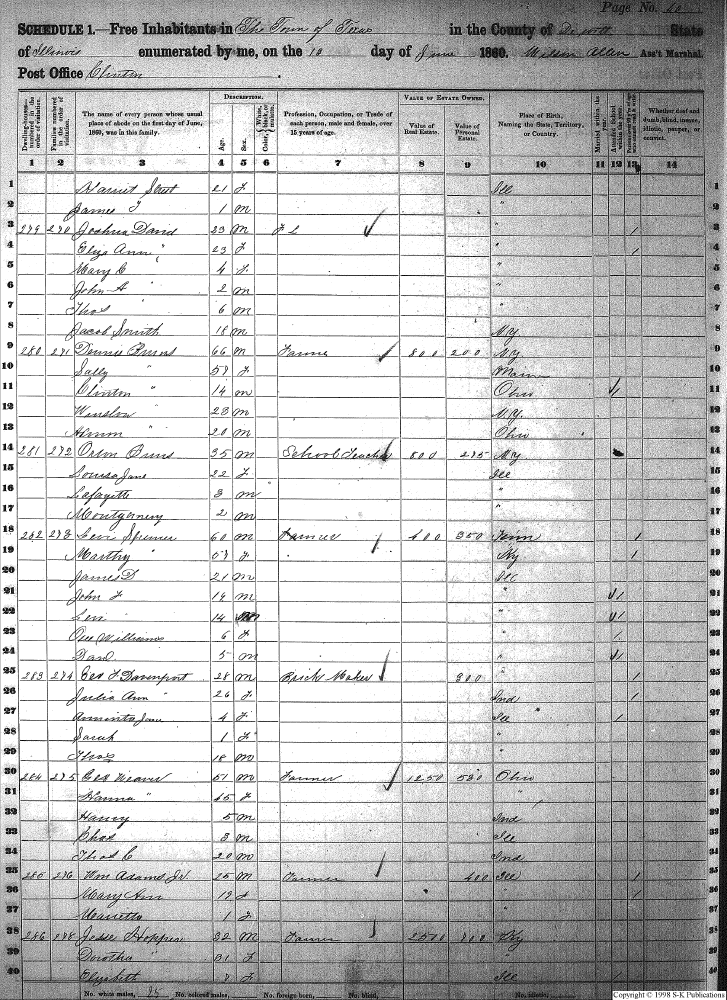 Page No. 40
SCHEDULE 1.—Free Inhabitants in The Town of Texas in the County of De witt State
of Illinois enumerated by me, on the 10 day of June 1860. Wilson Allen Ass't Marshal.
Post Office Clinton .
Dwelling-houses—numbered in the order of visitation.
Families numbered in the order of visitation.
The name of every person whose usual place of abode on the first day of June, 1860, was in this family.
DESCRIPTION.
Age.
Sex.
Color, White, black, or mulatto.
Profession, Occupation, or Trade of each person, male and female, over 15 years of age.
VALUE OF ESTATE OWNED.
Value of Real Estate.
Value of Personal Estate.
Place of Birth, Naming the State, Territory, or Country.
Married within the year.
Attended School within the year.
Whether deaf and dumb, blind, insane, idiotic, pauper, or convict.
1 2 3 4 5 6 7 8 9 10 11 12 13 14
1 Harriet 21 F Ill 1
2 James T 1 M " 2
3 279 270 Joshua David 23 M F L " 1 3
4 Eliza Ann " 23 F " 1 4
5 Mary C " 4 F " 5
6 John A " 2 M " 6
7 Thos 6 M " 7
8 Jacob Smith 18 M N.Y. 8
9 280 271 Burns 66 M Farmer 800 200 N.Y. 9
10 Sally " 57 F Main 10
11 Clinton " 14 M Ohio 1 11
12 Winslow " 23 M N.Y. 12
13 " 20 M Ohio 13
14 281 272 Orton Burns 35 M School Teacher 800 275 N.Y. 14
15 Louisa Jane 22 F Ill 15
16 Lafayette 3 M " 16
17 Montgomery 2 M " 17
18 282 273 Levi Spencer 60 M Farmer 400 350 Tenn 1 18
19 Marthy " 57 F Ky 1 19
20 James D 21 M Ill 20
21 John F 19 M " 1 21
22 Levi 14 M " 1 22
23 Williams 6 F " 1 23
24 5 M " 1 24
25 283 274 Geo F Davenport 28 M Brick Maker 300 " 1 25
26 Julia Ann " 26 F Ind 1 26
27 Jane 4 F Ill 1 27
28 Sarah 1 F " 28
29 Thos 18 M " 29
30 284 275 Geo Weaver 51 M Farmer 1250 530 Ohio 30
31 Hanna " 45 F " 31
32 Harry 5 M Ind 32
33 Chas 3 M Ill 33
34 Thos C 20 M Ind 34
35 285 276 Wm Adams Jr. 25 M Farmer 400 Ill 1 35
36 Mary Ann 19 F " 1 36
37 Marietta 1 F " 37
38 286 278 Jesse Hopper 32 M Farmer 2500 700 Ky 38
39 Dorotha " 31 F " 39
40 Elizabeth 7 F Ill 1 40
No. white males, 25 No. colored males, No. foreign born, No. blind,
Copyright © 1998 S-K Publications